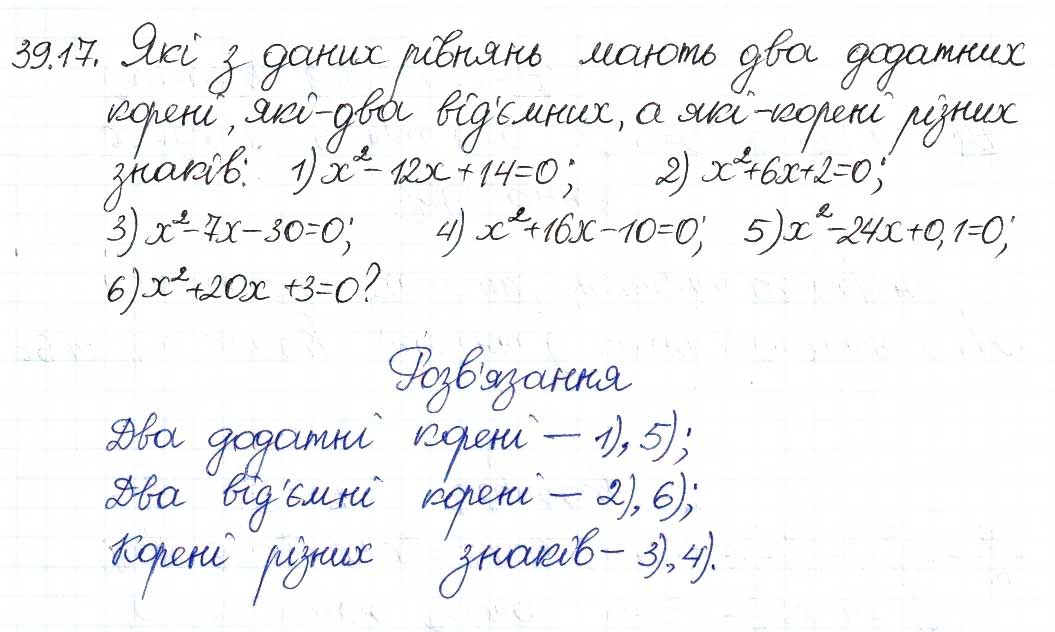 39.17. Які з даних рівнянь мають два додатних
корені, які-два від'ємних, а які-корені різних
знаків: 1) x²-12x+14=0; 2) x²+6x+2=0;
3) x²-7x-30=0; 4) x²+16x-10=0; 5) x²-24x+0,1=0;
6) x²+20x+3=0?
Розв'язання
Два додатні корені — 1), 5);
Два від'ємні корені — 2), 6);
Корені різних знаків — 3), 4).